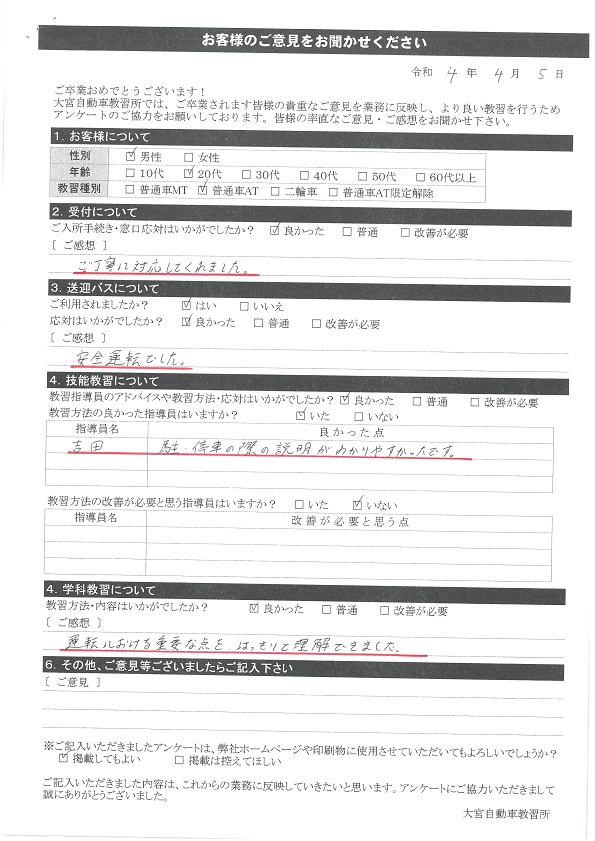 お客様のご意見をお聞かせください
令和 4 年 4 月 5 日
ご卒業おめでとうございます！
大宮自動車教習所では、ご卒業されます皆様の貴重なご意見を業務に反映し、より良い教習を行うため
アンケートのご協力をお願いしております。皆様の率直なご意見・ご感想をお聞かせ下さい。
1．お客様について
性別 ☑男性 □女性
年齢 □10代 ☑20代 □30代 □40代 □50代 □60代以上
教習種別 □普通車MT ☑普通車AT □二輪車 □普通車AT限定解除
2．受付について
ご入所手続き・窓口応対はいかがでしたか？ ☑良かった □普通 □改善が必要
［ ご感想 ］
ご丁寧に対応してくれました。
3．送迎バスについて
ご利用されましたか？ ☑はい □いいえ
応対はいかがでしたか？ ☑良かった □普通 □改善が必要
［ ご感想 ］
安全運転でした。
4．技能教習について
教習指導員のアドバイスや教習方法・応対はいかがでしたか？ ☑良かった □普通 □改善が必要
教習方法の良かった指導員はいますか？ ☑いた □いない
指導員名 良かった点
吉田 駐・停車の際の説明がわかりやすかったです。
教習方法の改善が必要と思う指導員はいますか？ □いた ☑いない
指導員名 改善が必要と思う点
4．学科教習について
教習方法・内容はいかがでしたか？ ☑良かった □普通 □改善が必要
［ ご感想 ］
運転における重要な点を はっきりと理解できました。
6．その他、ご意見等ございましたらご記入下さい
［ ご意見 ］
※ご記入いただきましたアンケートは、弊社ホームページや印刷物に使用させていただいてもよろしいでしょうか？
☑掲載してもよい □掲載は控えてほしい
ご記入いただきました内容は、これからの業務に反映していきたいと思います。アンケートにご協力いただきまして
誠にありがとうございました。
大宮自動車教習所